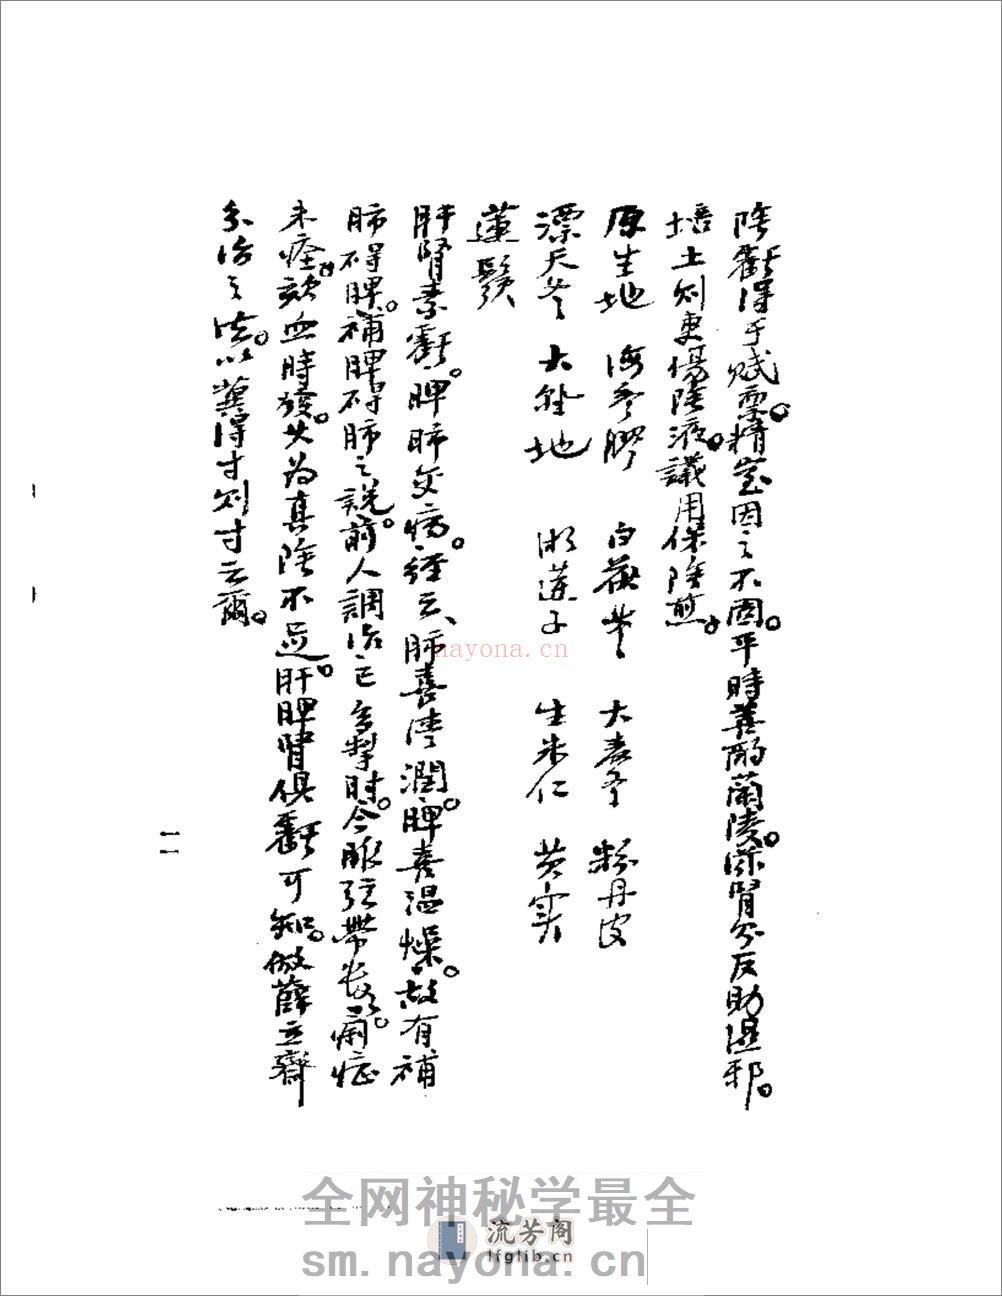 陰虧得于賦稟。精室因之不固。平時善酌蘭陵。滋腎益反助濕邪。
培土則更傷陰液。議用保陰煎。
原生地 海參膠 白茯苓 大麥冬 粉丹皮
漂天冬 大熟地 湘蓮子 生米仁 芡實
蓮鬚
肝腎素虧。脾肺交病。經云、肺喜清潤。脾喜溫燥。故有補
肺碍脾。補脾碍肺之說。前人調治已多掣肘。今脈弦帶數。痢症
未痊。欬血時發。火為真陰不足。肝脾腎俱虧可知。倣薛立齋
分治之法。以冀得寸則寸云爾。
一一
nayona.cn
全网神秘学最全
流芳阁
lfglib.cn
sm.nayona.cn